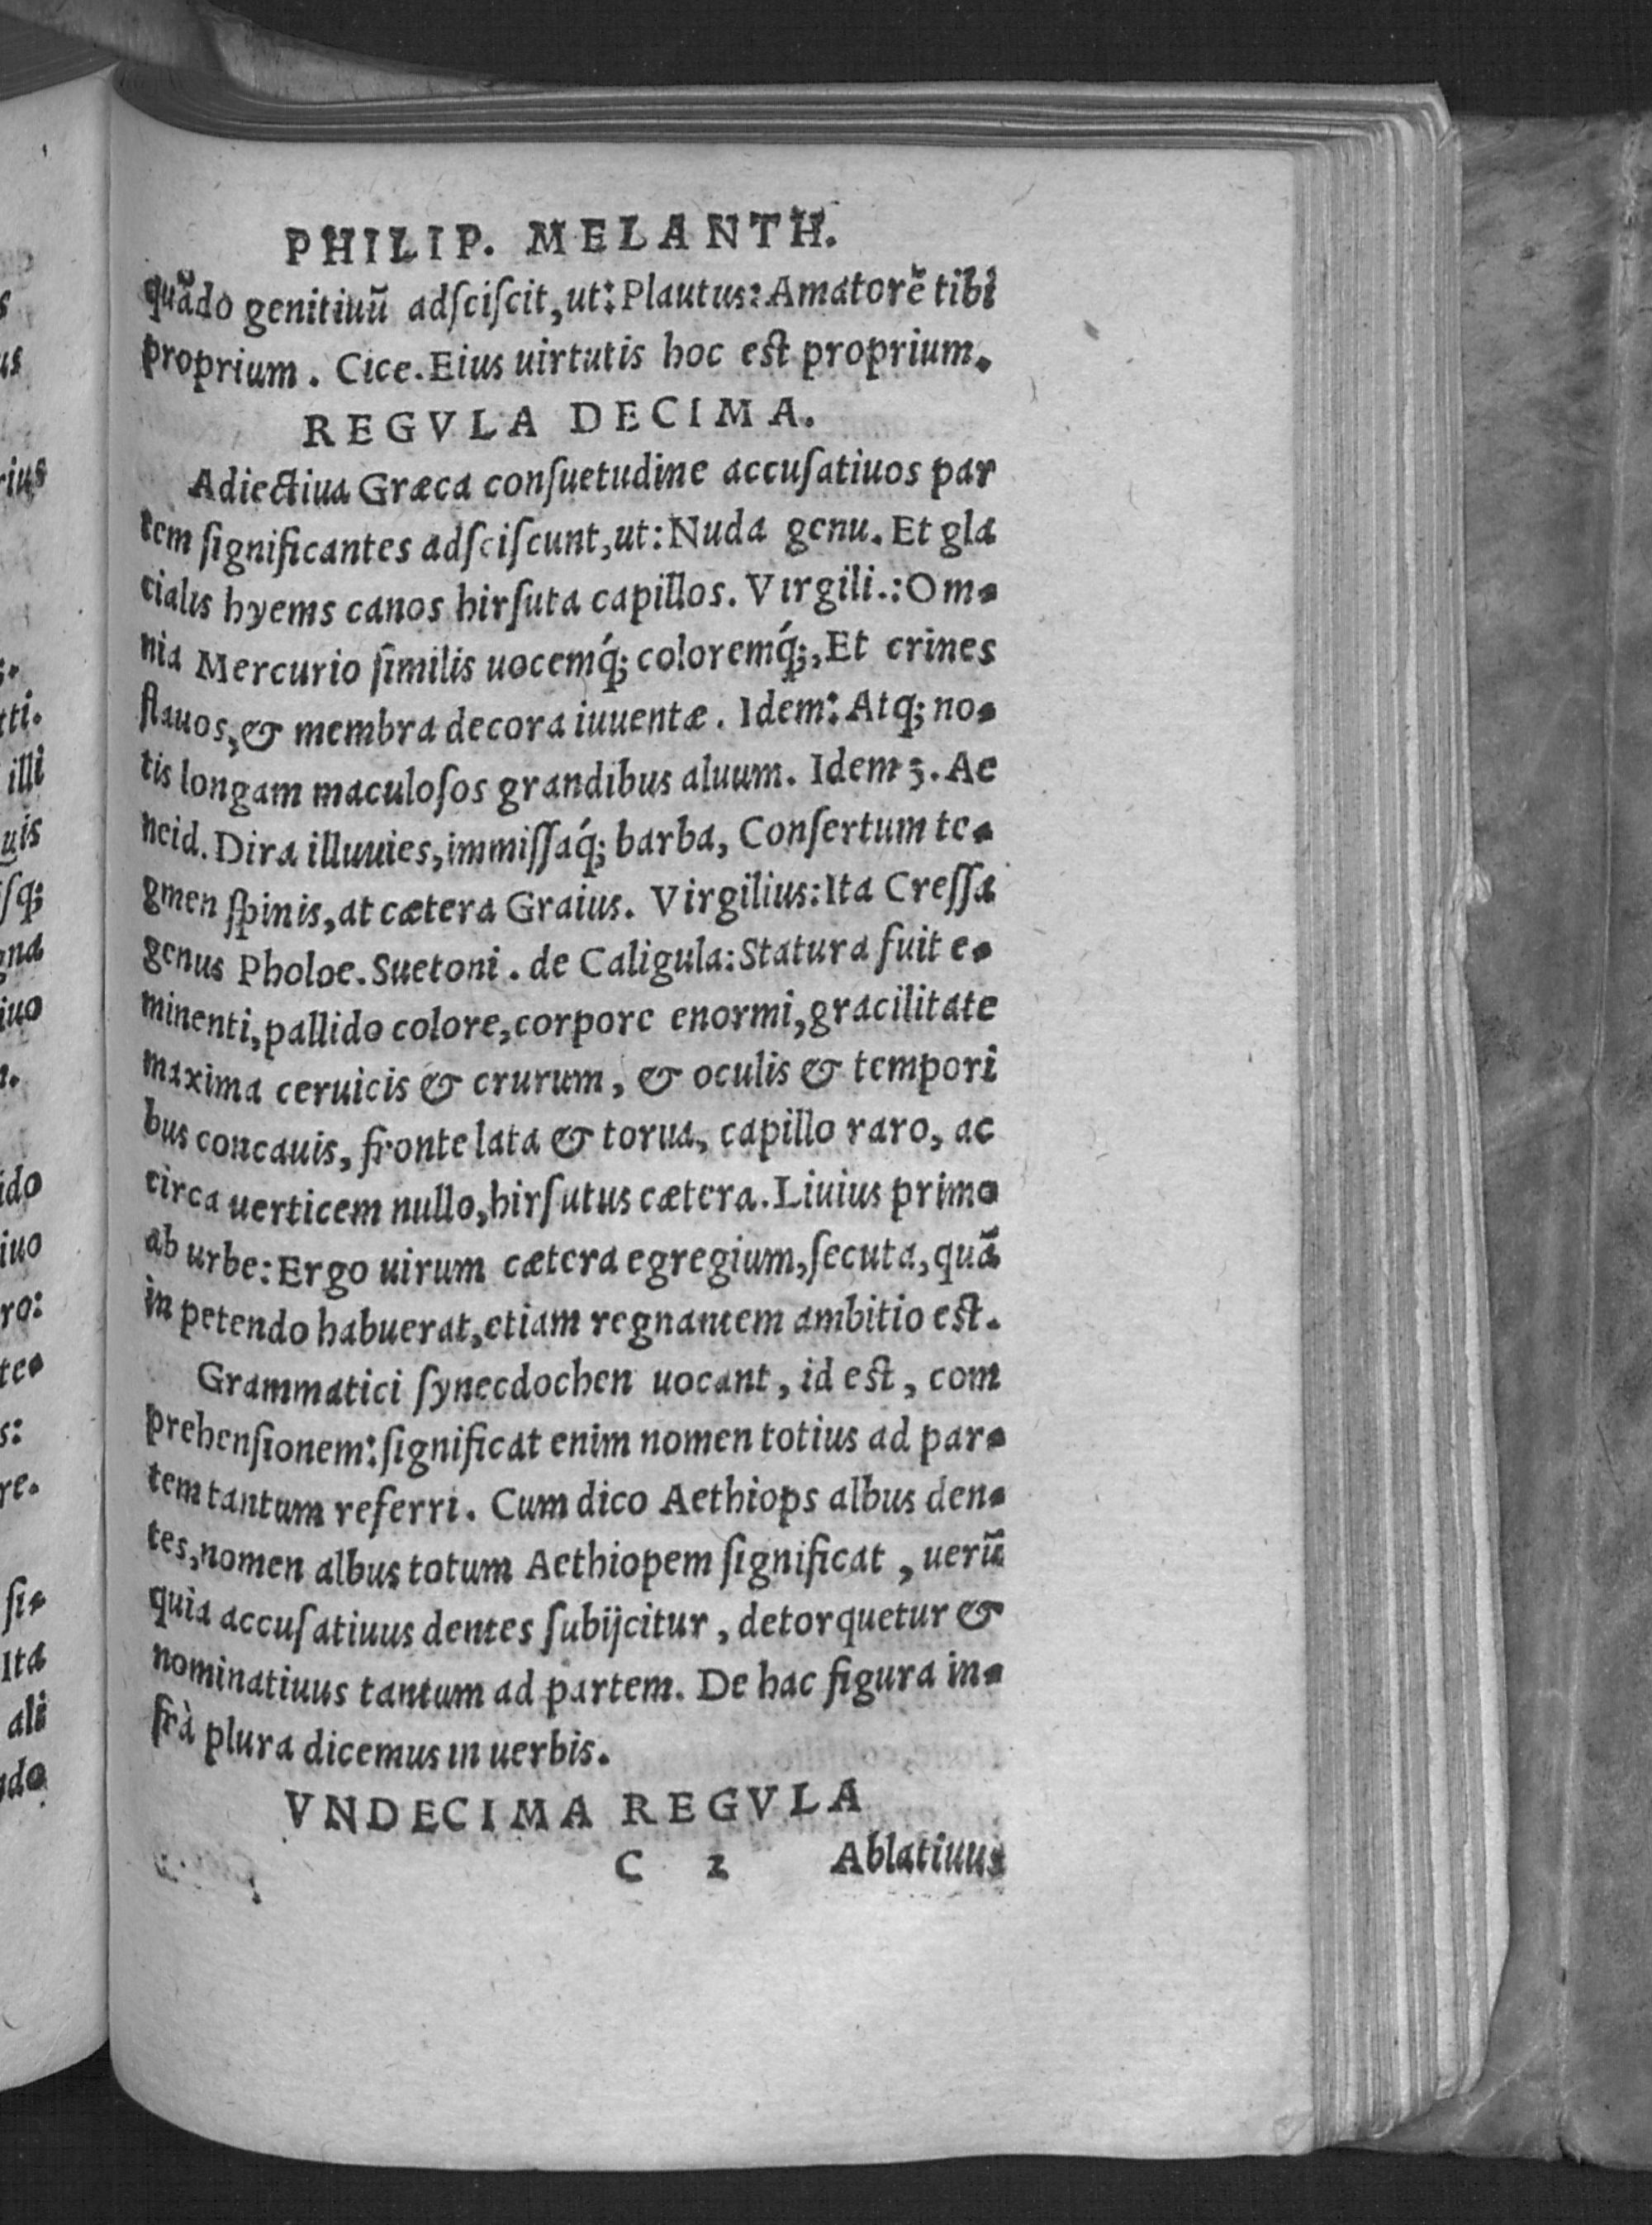 PHILIP. MELANTH.
quãdo genitiuũ adſciſcit, ut: Plautus: Amatorẽ tibi
proprium. Cice. Eius uirtutis hoc est proprium.
REGVLA DECIMA.
Adiectiua Græca conſuetudine accuſatiuos par
tem ſignificantes adſciſcunt, ut: Nuda genu. Et gla
cialis hyems canos hirſuta capillos. Virgili.: Om-
nia Mercurio ſimilis uocemq́; coloremq́;, Et crines
flauos, & membra decora iuuentæ. Idem: Atq; no-
tis longam maculoſos grandibus aluum. Idem 3. Ae
neid. Dira illuuies, immiſſaq́; barba, Conſertum te-
gmen ſpinis, at cætera Graius. Virgilius: Ita Creſſa
genus Pholoe. Suetoni. de Caligula: Statura fuit e-
minenti, pallido colore, corpore enormi, gracilitate
maxima ceruicis & crurum, & oculis & tempori
bus concauis, fronte lata & torua, capillo raro, ac
circa uerticem nullo, hirſutus cætera. Liuius primo
ab urbe: Ergo uirum cætera egregium, ſecuta, quã
in petendo habuerat, etiam regnantem ambitio est.
Grammatici ſynecdochen uocant, id est, com
prehenſionem: ſignificat enim nomen totius ad par-
tem tantum referri. Cum dico Aethiops albus den-
tes, nomen albus totum Aethiopem ſignificat, uerũ
quia accuſatiuus dentes ſubijcitur, detorquetur &
nominatiuus tantum ad partem. De hac figura in-
frà plura dicemus in uerbis.
VNDECIMA REGVLA
C 2 Ablatiuus